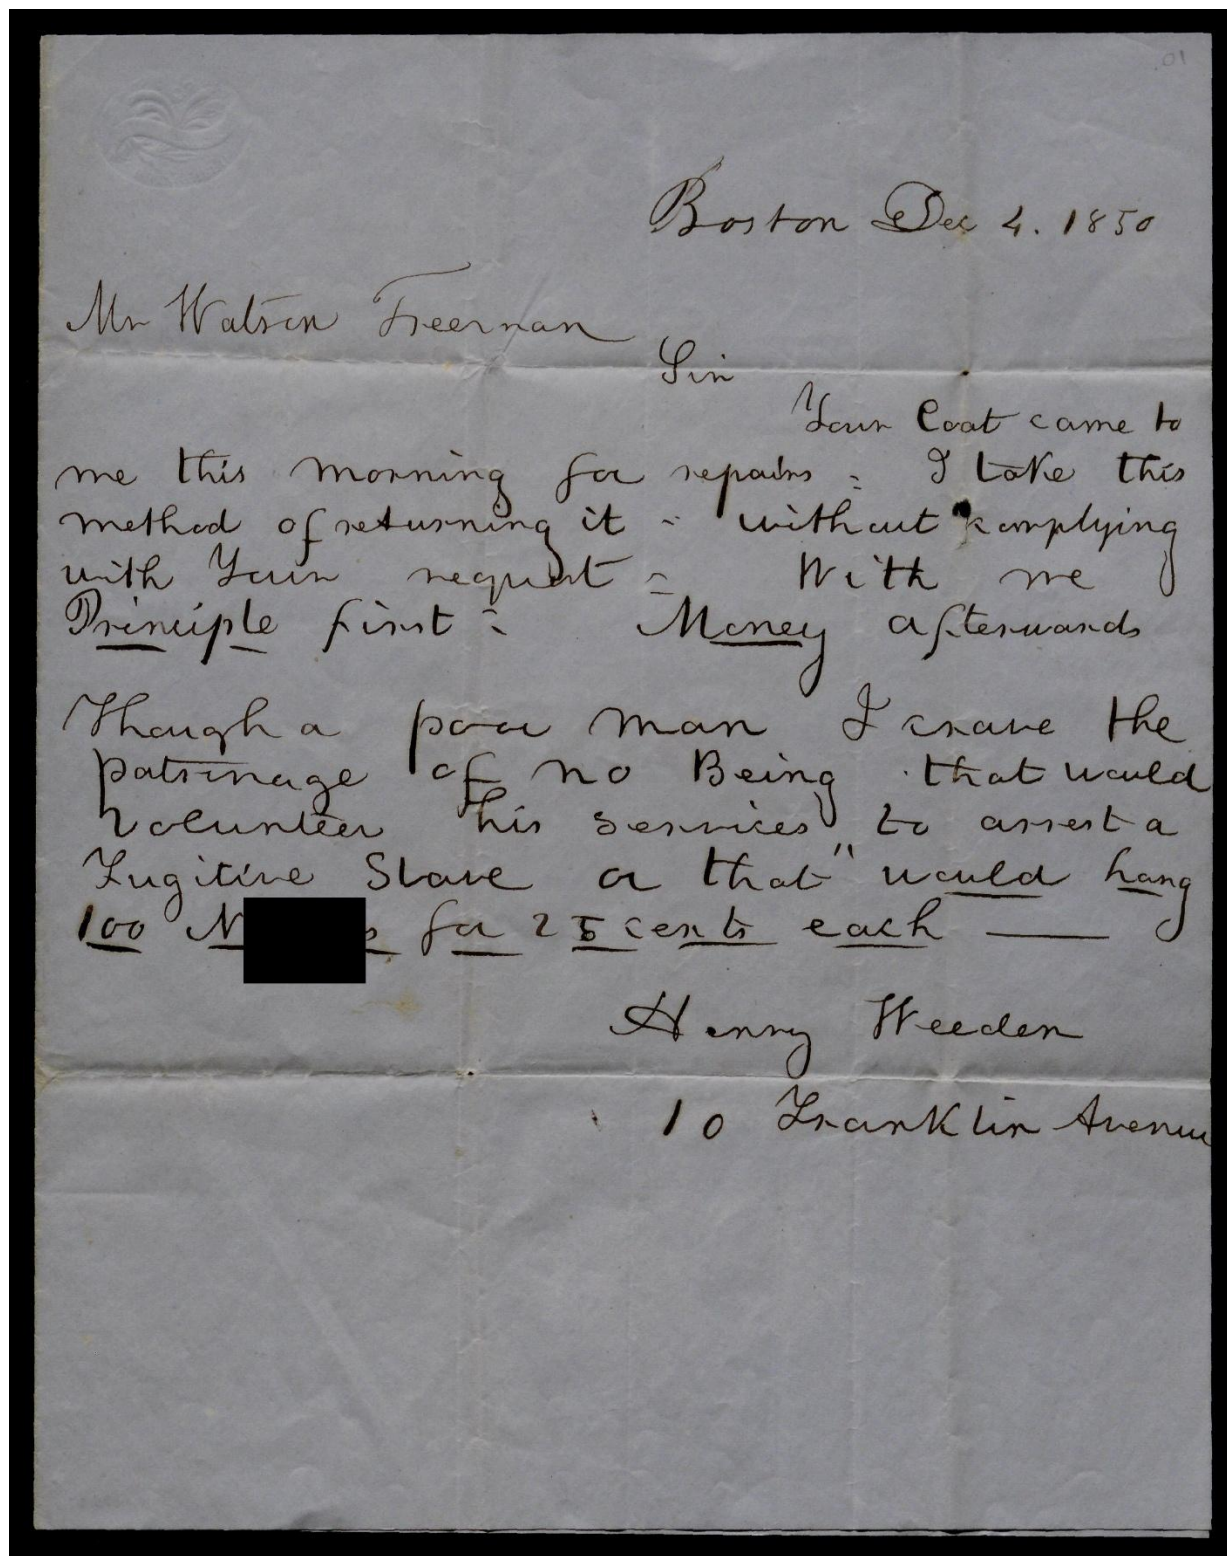 Boston Dec 4. 1850
Mr Watson Freeman
Sir
Your Coat came to
me this morning for repairs - I take this
method of returning it - without complying
with Your request - With me
Principle first - Money afterwards
Though a poor man I crave the
patronage of no Being that would
volunteer his services to arrest a
Fugitive Slave or that "would hang
100 N s for 25 cents each —
Henry Weeden
10 Franklin Avenue